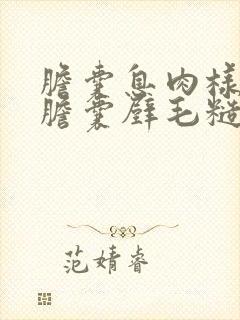 膽囊息肉樣
膽囊壁毛糙
范婧睿